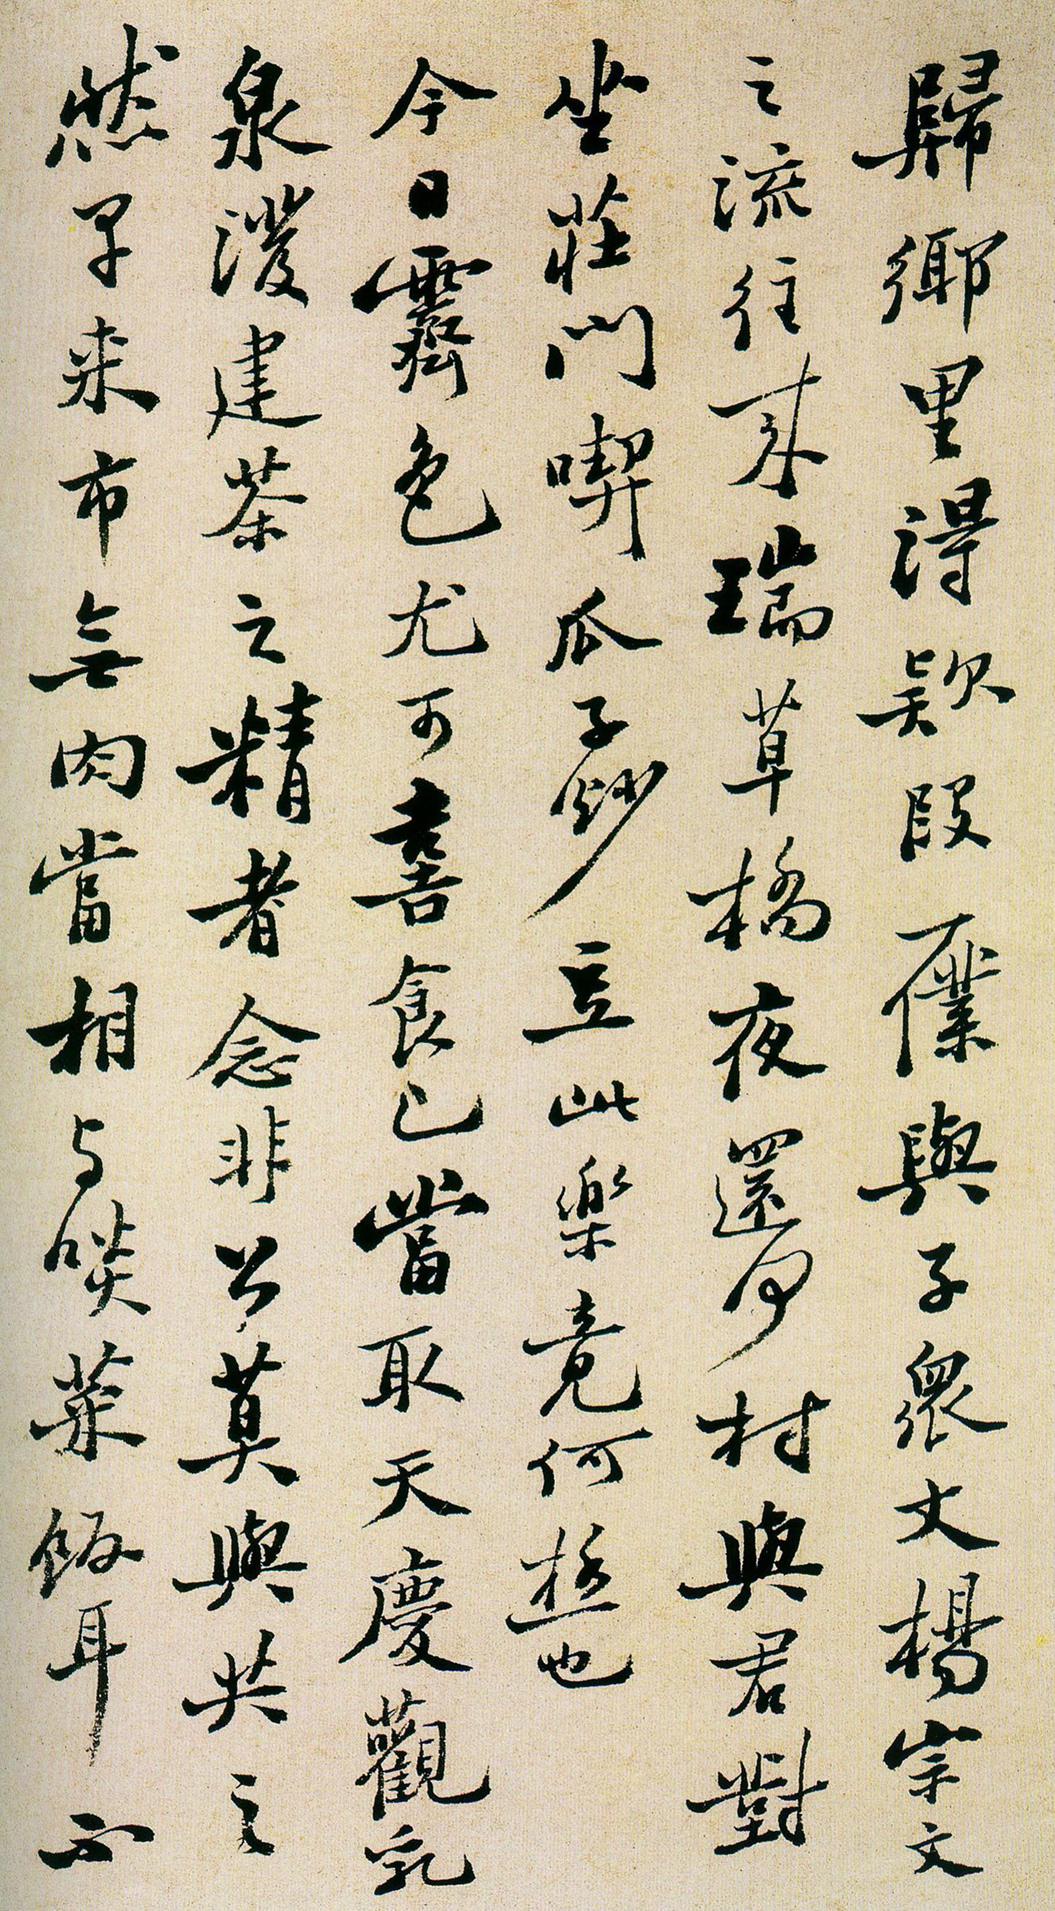 歸鄉里得款段僕與子衆丈楊宗文
之流往來瑞草橋夜還何村與君對
坐莊門喫瓜子炒豆此樂竟何極也
今日霽色尤可喜食已當取天慶觀乳
泉潑建茶之精者念非公莫與共之
然早來市無肉當相与啖菜飯耳不